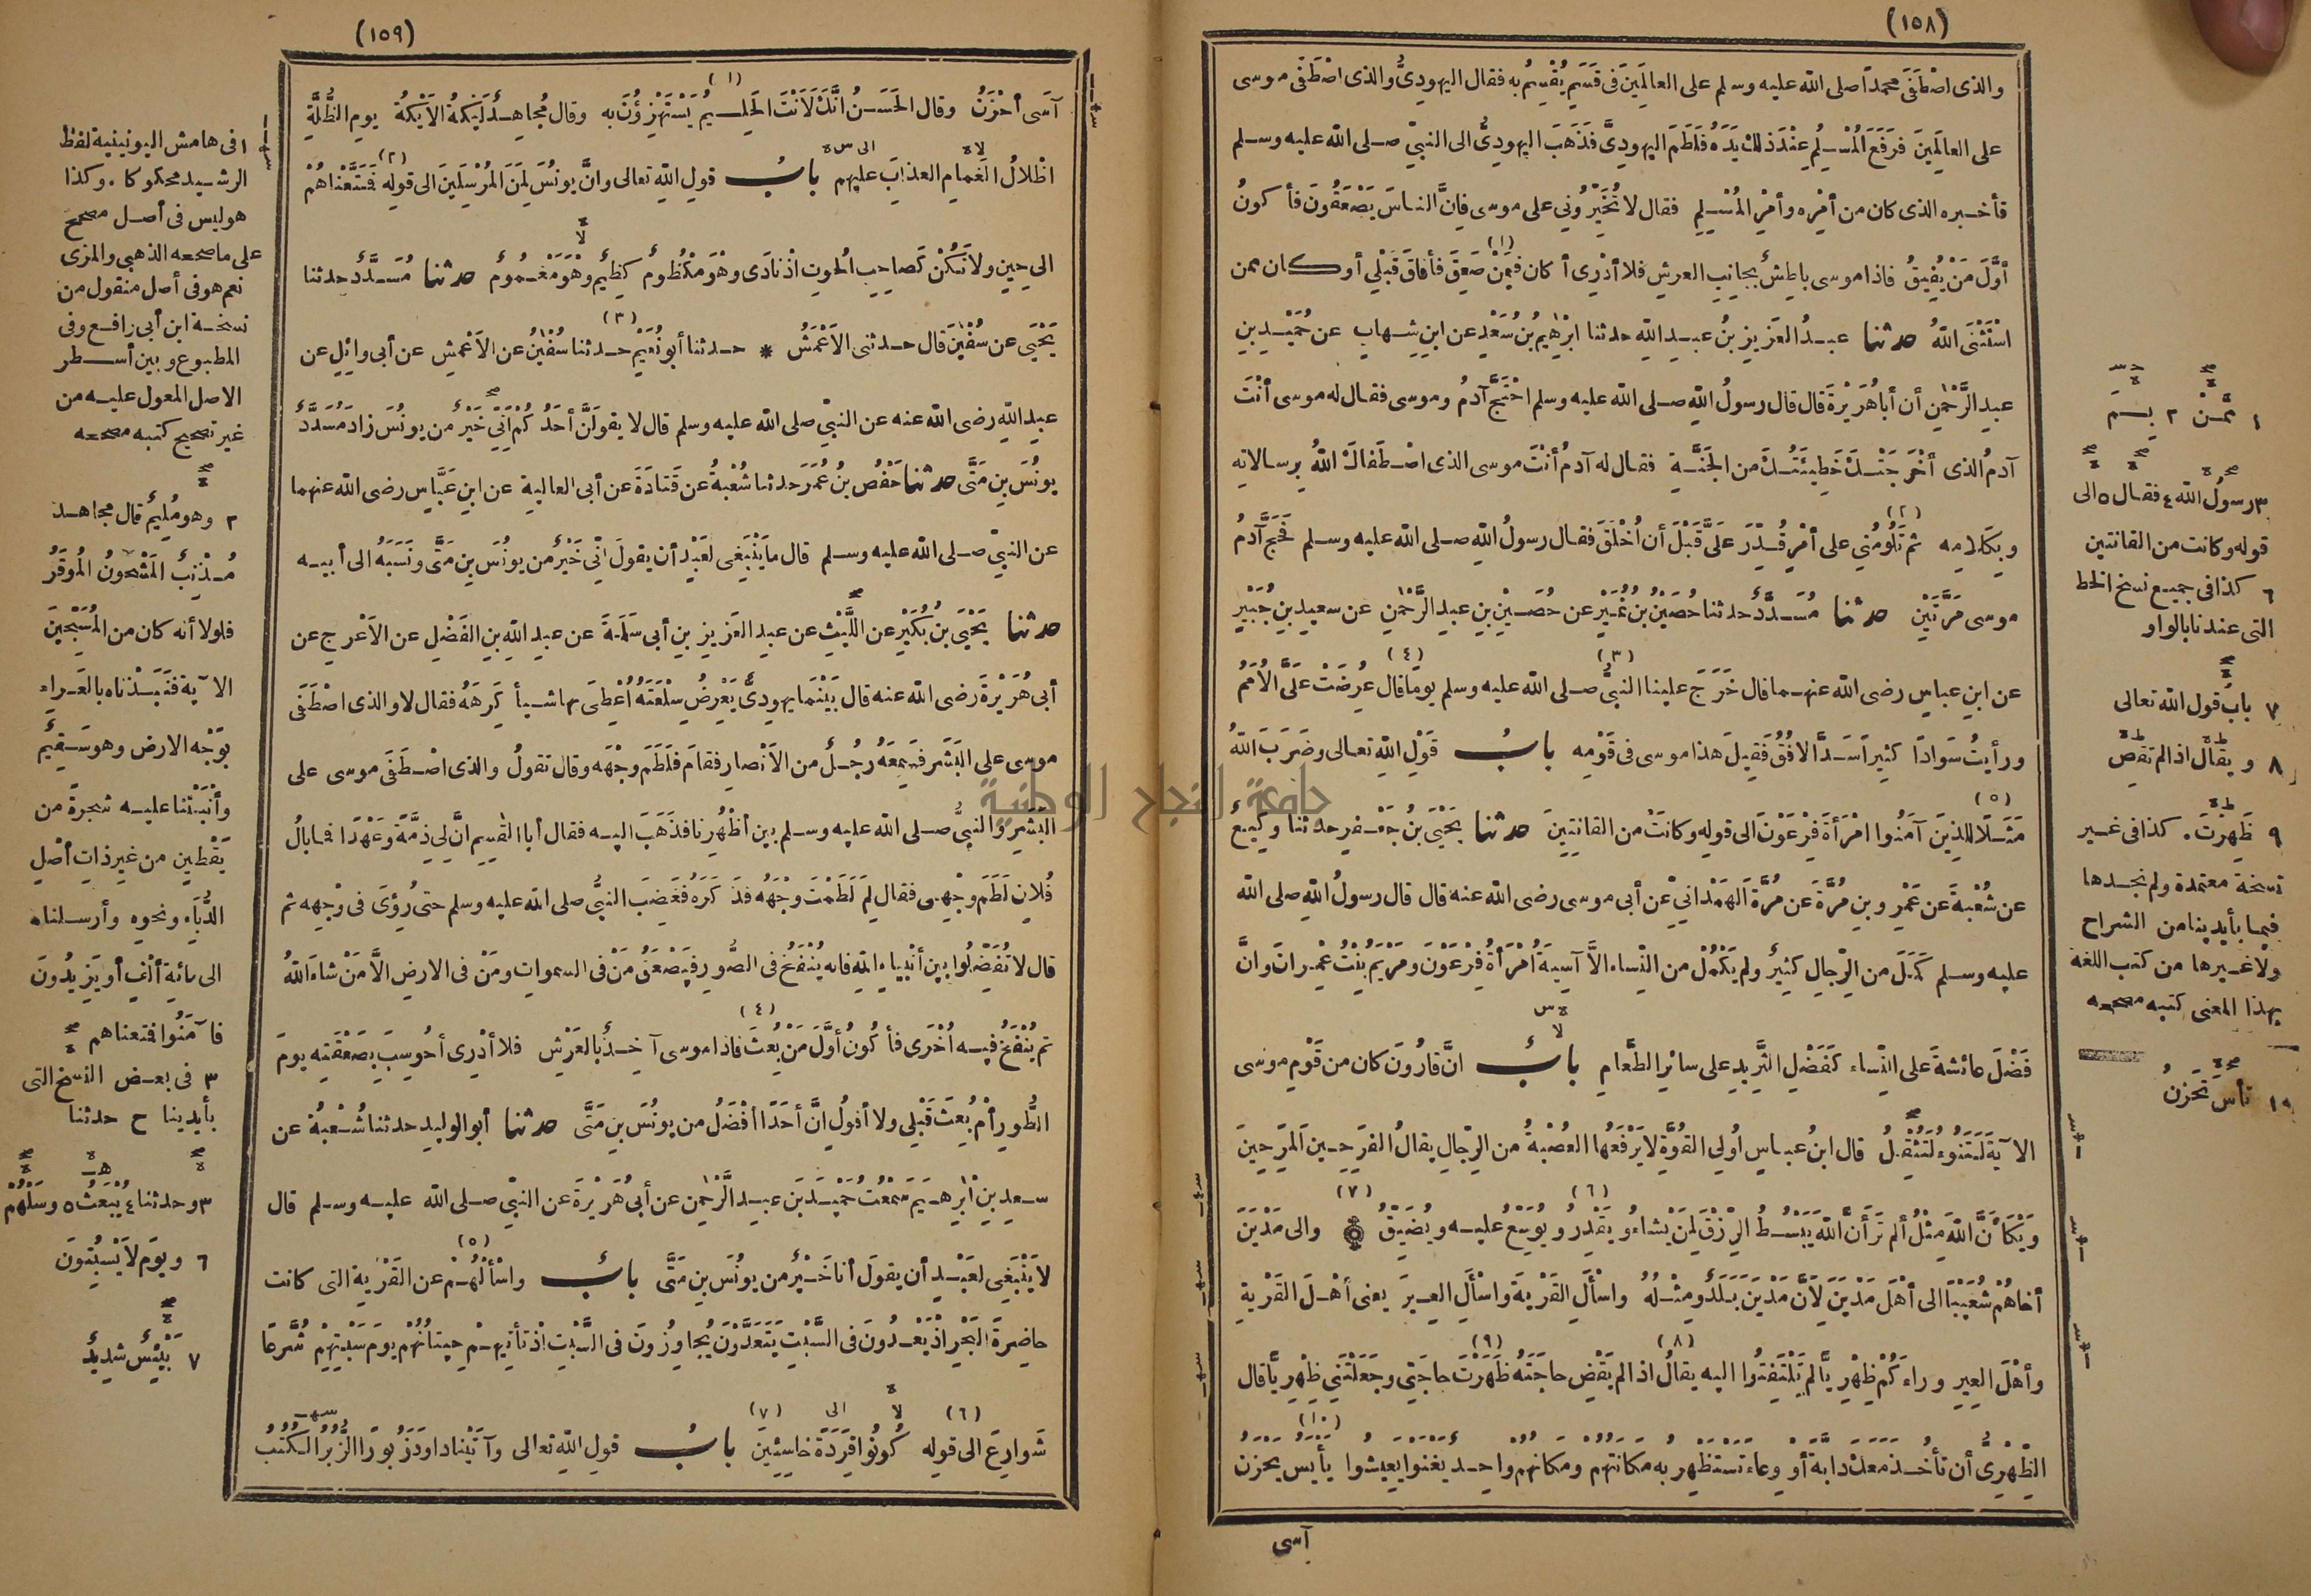 (١٥٨)
والذى اصْطَفَى محمدًا صلى الله عليه وسلم على العالَمِينَ فى قَسَمٍ يُقْسِمُ به فقال اليهودىُّ والذى اصْطَفَى موسى
على العالَمِينَ فرَفَعَ المُسْلِمُ عِنْدَ ذلك يَدَهُ فلَطَمَ اليهودىَّ فذَهَبَ اليهودىُّ الى النبىِّ صلى الله عليه وسلم
فأخبره الذى كان من أمْرِه وأمْرِ المُسْلِمِ فقال لا تُخَيِّرُونِى على موسى فإنَّ الناسَ يَصْعَقُونَ فأكونُ
أوَّلَ مَنْ يُفِيقُ فاذا موسى باطِشٌ بجانِبِ العرشِ فلا أدْرِى أ كان فِيمَنْ (١) صَعِقَ فأفاقَ قَبْلِى أو كان ممن
اسْتَثْنَى اللهُ حدثنا عبدُ العَزِيزِ بنُ عبدِ اللهِ حدثنا ابرٰهِيمُ بنُ سَعْدٍ عن ابنِ شِهابٍ عن حُمَيْدِ بنِ
عبدِ الرَّحْمٰنِ أن أباهُرَيْرَةَ قال قال رسولُ اللهِ صلى الله عليه وسلم احْتَجَّ آدمُ وموسى فقال له موسى أنْتَ
آدمُ الذى أخْرَجَتْكَ خَطِيئَتُكَ من الجَنَّةِ فقال له آدمُ أنْتَ موسى الذى اصْطَفَاكَ اللهُ بِرسالاتِه
وبِكَلامِه ثم (٢) تَلُومُنِى على أمْرٍ قُدِّرَ عَلَىَّ قَبْلَ أن أُخْلَقَ فقال رسولُ اللهِ صلى الله عليه وسلم فَحَجَّ آدمُ
موسى مَرَّتَيْنِ حدثنا مُسَدَّدٌ حدثنا حُصَيْنُ بنُ نُمَيْرٍ عن حُصَيْنِ بنِ عبدِ الرَّحْمٰنِ عن سعيدِ بنِ جُبَيْرٍ
عن ابنِ عباسٍ رضى الله عنهما قال خَرَجَ علينا النبىُّ (٣) صلى الله عليه وسلم يومًا قال (٤) عُرِضَتْ عَلَىَّ الأُمَمُ
ورأيتُ سَوادًا كثيرًا سَدَّ الأفُقَ فَقِيلَ هذا موسى فى قَوْمِه بابُ قَوْلِ اللهِ تعالى وضَرَبَ اللهُ
مَثَلًا للذِينَ آمَنُوا امْرَأةَ فِرْعَوْنَ الى قوله (٥) وكانَتْ من القانِتِينَ حدثنا يَحْيَى بنُ جَعْفَرٍ حدثنا وكِيعٌ
عن شُعْبَةَ عن عَمْرِو بنِ مُرَّةَ عن مُرَّةَ الهَمْدانِىِّ عن أبى موسى رضى الله عنه قال قال رسولُ اللهِ صلى الله
عليه وسلم كَمَلَ من الرِّجالِ كثيرٌ ولم يَكْمُلْ من النِّساء الاَّ آسِيَةُ امْرَأةُ فِرْعَوْنَ ومَرْيَمُ بِنْتُ عِمْرانَ وانَّ
فَضْلَ عائشةَ على النِّساء كَفَضْلِ الثَّرِيدِ على سائرِ الطَّعامِ بابُ انَّ قارُونَ كان من قَوْمِ موسى
الا يَةَ لَتَنُوءُ لَتُثْقِلُ قال ابنُ عباسٍ أُولِى القُوَّةِ لا يَرْفَعُها العُصْبَةُ من الرِّجالِ يقالُ الفَرِحِينَ المَرِحِينَ
وَيْكَأنَّ اللهَ مِثْلُ ألم تَرَ أنَّ اللهَ يَبْسُطُ الرِّزْقَ لِمَنْ يشاءُ ويَقْدِرُ (٦) ويُوَسِّعُ عليه ويُضَيِّقُ (٧) والى مَدْيَنَ
أخاهُمْ شُعَيْبًا الى أهْلِ مَدْيَنَ لأَنَّ مَدْيَنَ بَلَدٌ ومِثْلُهُ واسْألِ القَرْيَةَ واسْألِ العِيرَ يعنى أهْلَ القَرْيَةِ
وأهْلَ العِيرِ وراءَكُمْ ظِهْرِيًّا لم يَلْتَفِتُوا اليه يقالُ (٨) اذا لم يَقْضِ حاجَتَهُ ظَهَرْتَ (٩) حاجَتِى وجَعَلْتَنِى ظِهْرِيًّا قال
الظِّهْرِىُّ أن تأخُذَ مَعَكَ دابةً أو وِعاءً تَسْتَظْهِرُ به مَكانَتُهُم ومَكانُهُم واحد يَغْنَوْا يَعِيشُوا (١٠) يأيَسُ يَحْزَنُ
آسى
١ ممَّنْ ٢ بِمَ
٣ رسولُ الله ٤ فقال ٥ الى
قوله وكانت من القانتين
٦ كذا فى جميع نسخ الخط
التى عندنا بالواو
٧ بابُ قول الله تعالى
٨ ويقال اذا لم تقض
٩ ظَهَرْتَ . كذا فى غير
نسخة معتمدة ولم نجدها
فيما بأيدينا من الشراح
ولا غيرها من كتب اللغة
بهذا المعنى كتبه مصححه
١٠ تأسَ تَحْزَنْ
(١٥٩)
آسَى أحْزَنُ وقال الحَسَنُ انَّكَ لَأنْتَ الحَلِيمُ (١) يَسْتَهْزِؤُنَ به وقال مُجاهِدٌ لَيْكَةُ الأَيْكَةُ يوم الظُّلَّةِ
اظْلالُ الغَمامِ العذابَ عليهم بابُ قولِ اللهِ تعالى وانَّ يونُسَ لَمِنَ المُرْسَلِينَ الى قوله (٢) فَمَتَّعْناهُمْ
الى حِينٍ ولا تَكُنْ كَصاحِبِ الحُوتِ اذْ نادَى وهْوَ مَكْظُومٌ كَظِيمٌ وهْوَ مَغْمُومٌ حدثنا مُسَدَّدٌ حدثنا
يَحْيَى عن سُفْيٰنَ قال حدثنى الأَعْمَشُ * حدثنا (٣) أبو نُعَيْمٍ حدثنا سُفْيٰنُ عن الأَعْمَشِ عن أبى وائِلٍ عن
عبدِ اللهِ رضى الله عنه عن النبىِّ صلى الله عليه وسلم قال لا يقولَنَّ أحَدُكُمْ انِّى خَيْرٌ من يونُسَ زاد مُسَدَّدٌ
يونُسَ بنِ مَتَّى حدثنا حَفْصُ بنُ عُمَرَ حدثنا شُعْبَةُ عن قَتادَةَ عن أبى العالِيَةِ عن ابنِ عَبَّاسٍ رضى الله عنهما
عن النبىِّ صلى الله عليه وسلم قال ما يَنْبَغِى لعَبْدٍ أن يقولَ انِّى خَيْرٌ من يونُسَ بنِ مَتَّى ونَسَبَهُ الى أبيه
حدثنا يَحْيَى بنُ بُكَيْرٍ عن اللَّيْثِ عن عبدِ العَزِيزِ بنِ أبى سَلَمَةَ عن عبدِ اللهِ بنِ الفَضْلِ عن الأَعْرَجِ عن
أبى هُرَيْرَةَ رضى الله عنه قال بَيْنَما يهودىٌّ يَعْرِضُ سِلْعَتَهُ أُعْطِىَ بها شيأ كَرِهَهُ فقال لا والذى اصْطَفَى
موسى على البَشَرِ فسَمِعَهُ رجُلٌ من الأنْصارِ فقامَ فلَطَمَ وجْهَه وقال تقولُ والذى اصْطَفَى موسى على
البَشَرِ والنبىُّ صلى الله عليه وسلم بين أظْهُرِنا فذَهَبَ اليه فقال أبا القٰسِمِ انَّ لِى ذِمَّةً وعَهْدًا فما بالُ
فُلانٍ لَطَمَ وجْهِى فقال لِمَ لَطَمْتَ وجْهَهُ فذَكَرَهُ فغَضِبَ النبىُّ صلى الله عليه وسلم حتى رُؤىَ فى وجْهِه ثم
قال لا تُفَضِّلُوا بين أنْبِياءِ اللهِ فانه يُنْفَخُ فى الصُّورِ فيَصْعَقُ مَنْ فى السموات ومَنْ فى الارضِ الاَّ مَنْ شاءَ اللهُ
ثم يُنْفَخُ فيه أُخْرَى فأكُونُ أوَّلَ مَنْ بُعِثَ (٤) فاذا موسى آخِذٌ بالعَرْشِ فلا أدْرِى أحُوسِبَ بصَعْقَتِه يومَ
الطُّورِ أمْ بُعِثَ قَبْلِى ولا أقولُ انَّ أحَدًا أفْضَلُ من يونُسَ بنِ مَتَّى حدثنا أبو الوليدِ حدثنا شُعْبَةُ عن
سعدِ بنِ ابْرٰهِيمَ سَمِعْتُ حُمَيْدَ بنَ عبدِ الرَّحْمٰنِ عن أبى هُرَيْرَةَ عن النبىِّ صلى الله عليه وسلم قال
لا يَنْبَغِى لعَبْدٍ أن يقولَ أنا خَيْرٌ من يونُسَ بنِ مَتَّى بابُ واسْألْهُمْ (٥) عن القَرْيَةِ التى كانت
حاضِرَةَ البَحْرِ اذْ يَعْدُونَ فى السَّبْتِ يَتَعَدَّوْنَ يُجاوِزُونَ فى السَّبْتِ اذْ تأتِيهِمْ حِيتانُهُمْ يومَ سَبْتِهِمْ شُرَّعًا
شَوارِعَ الى قوله (٦) كُونُوا قِرَدَةً خاسِئِينَ (٧) بابُ قولِ اللهِ تعالى وآتَيْنا داودَ زَبُورًا الزُّبُرُ الكُتُبُ
١ فى هامش اليونينية لفظ
الرشيد محكوكا . وكذا
هو ليس فى أصل مصحح
على ما صححه الذهبى والمزى
نعم هو فى أصل منقول من
نسخة ابن أبى رافع وفى
المطبوع وبين أسطر
الاصل المعول عليه من
غير تصحيح كتبه مصححه
٢ وهو مُلِيمٌ قال مجاهد
مُذْنِبٌ المَشْحُونُ المُوقَرُ
فلولا أنه كان من المُسَبِّحِينَ
الا ية فنَبَذْناه بالعَراءِ
بوَجْه الارض وهو سَقِيمٌ
وأنْبَتْنا عليه شجرةً من
يَقْطِينٍ من غيرِ ذاتِ أصْلٍ
الدُّبَّاءِ ونحوه وأرسلناه
الى مائةِ ألْفٍ أو يَزِيدُونَ
فآمَنُوا فمتعناهم
٣ فى بعض النسخ التى
بأيدينا ح حدثنا
٣ وحدثنا ٤ يُبْعَثُ ٥ وسَلْهُمْ
٦ ويومَ لا يَسْبِتُونَ
٧ بَئِيسٌ شديدٌ
جامعة النجاح الوطنية